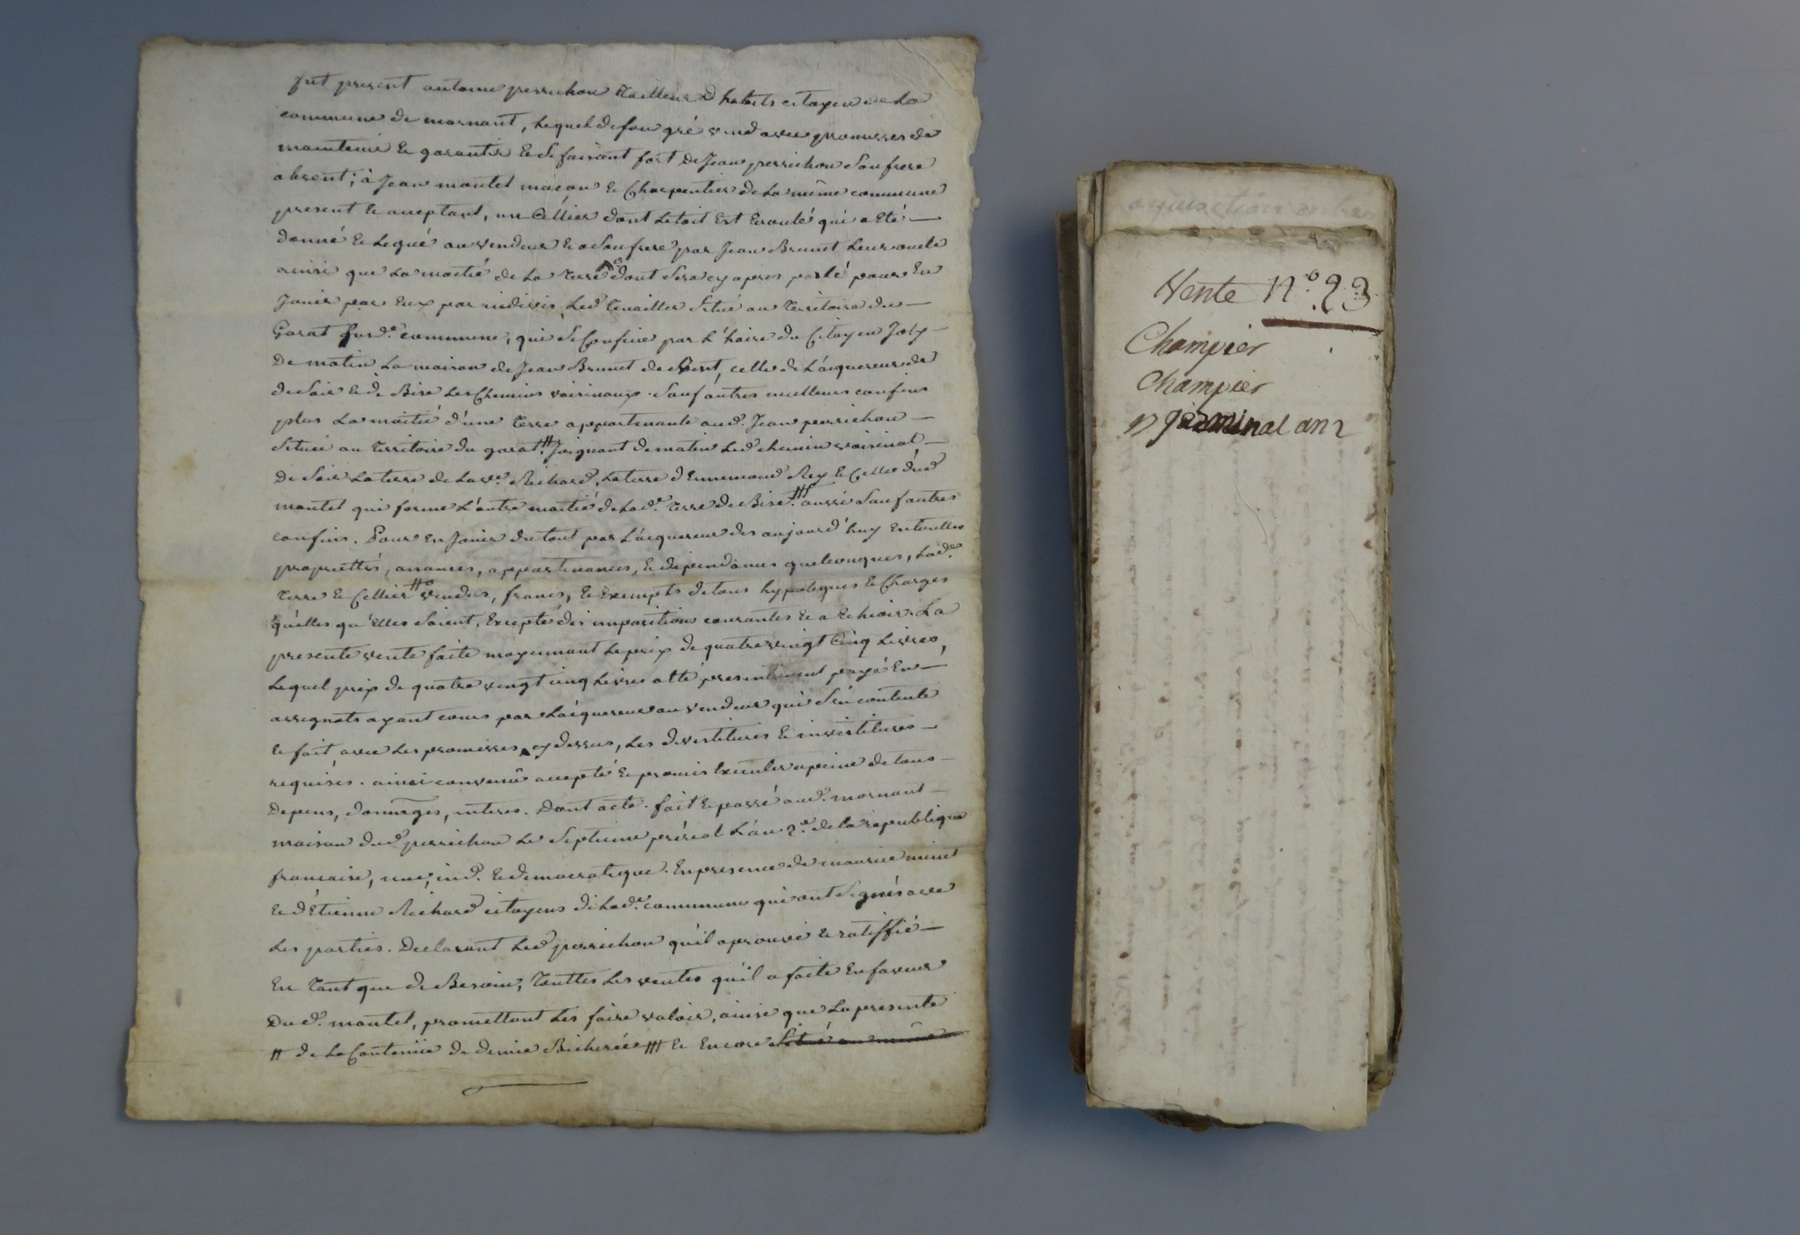 fut present antoine perrichon Tailleur d'habits citoyen de La
commune de mornant, Lequel de son gré vend avec promesses de
maintenir & garantir & se faisant fort de Jean perrichon Son frere
absent; à Jean montel maçon & Charpentier de La même commune
present & acceptant, un Cellier dont Le toit est Ecroulé qui a Eté —
donné & Legué au vendeur & a Son frere par Jean Brunet Leur oncle
ainsi que La moitié de La terre dont Sera cy apres parlé pour En
Jouir par Eux par indivis, Led. situé au Territoire du —
Garat Susd.e commune, qui Se Confine par L'haire du Citoyen Joly —
De matin La maison de Jean Brunet de vent, celle de L'acquereur de
de Soir & de Bise Les Chemins voisinaux. Sauf autres meilleurs confins
plus La moitié d'une Terre appartenante aud. Jean perrichon —
Située au Territoire du garat # Joignant de matin Led. chemin voisinal —
De Soir La terre de La ve. Richard, La terre d'Ennemond Rey & Celle dud.
montel qui forme L'autre moitié de Lad.e terre de Bise # aussi Sauf autres
confins. Pour En Jouir du tout par L'acquereur des aujourd'huy En toutes
proprietés, aisances, appartenances, & dependances quelconques, Lad.e
Terre & Cellier # vendus, francs, & Exempts de tous hypoteques & Charges
quelles qu'Elles Soient, Excepté des impositions courantes & a Echeoir. La
presente vente faite moyennant Le prix de quatre vingt Cinq Livres,
Lequel prix de quatre vingt cinq Livres a Eté presentement payé En —
assignats ayant cours par L'acquereur au vendeur qui S'en contente
& fait avec Les promesses cy dessus, Les devestitures & investitures —
requises. ainsi convenu accepté & promis Executer a peine de tous —
Depens, domages, interes. Dont acte. fait & passé aud. mornant —
maison dud. perrichon Le Septieme préréal L'an 2e. de la republique
francaise, une, ind. & democratique. En presence de maurice minet
& d'Etienne Richard citoyens de Lad.e commune qui ont Signés avec
Les parties. Declarant Led. perrichon qu'il aprouve & ratiffie —
En Tant que de Besoin, Touttes Les ventes qu'il a faite En faveur
Dud. montel, promettant Les faire valoir, ainsi que La presente
# de La Contenue de demie Bicherée ## & Encore situé au même
Vente N.o 23
Champier
Champier
germinal an 2